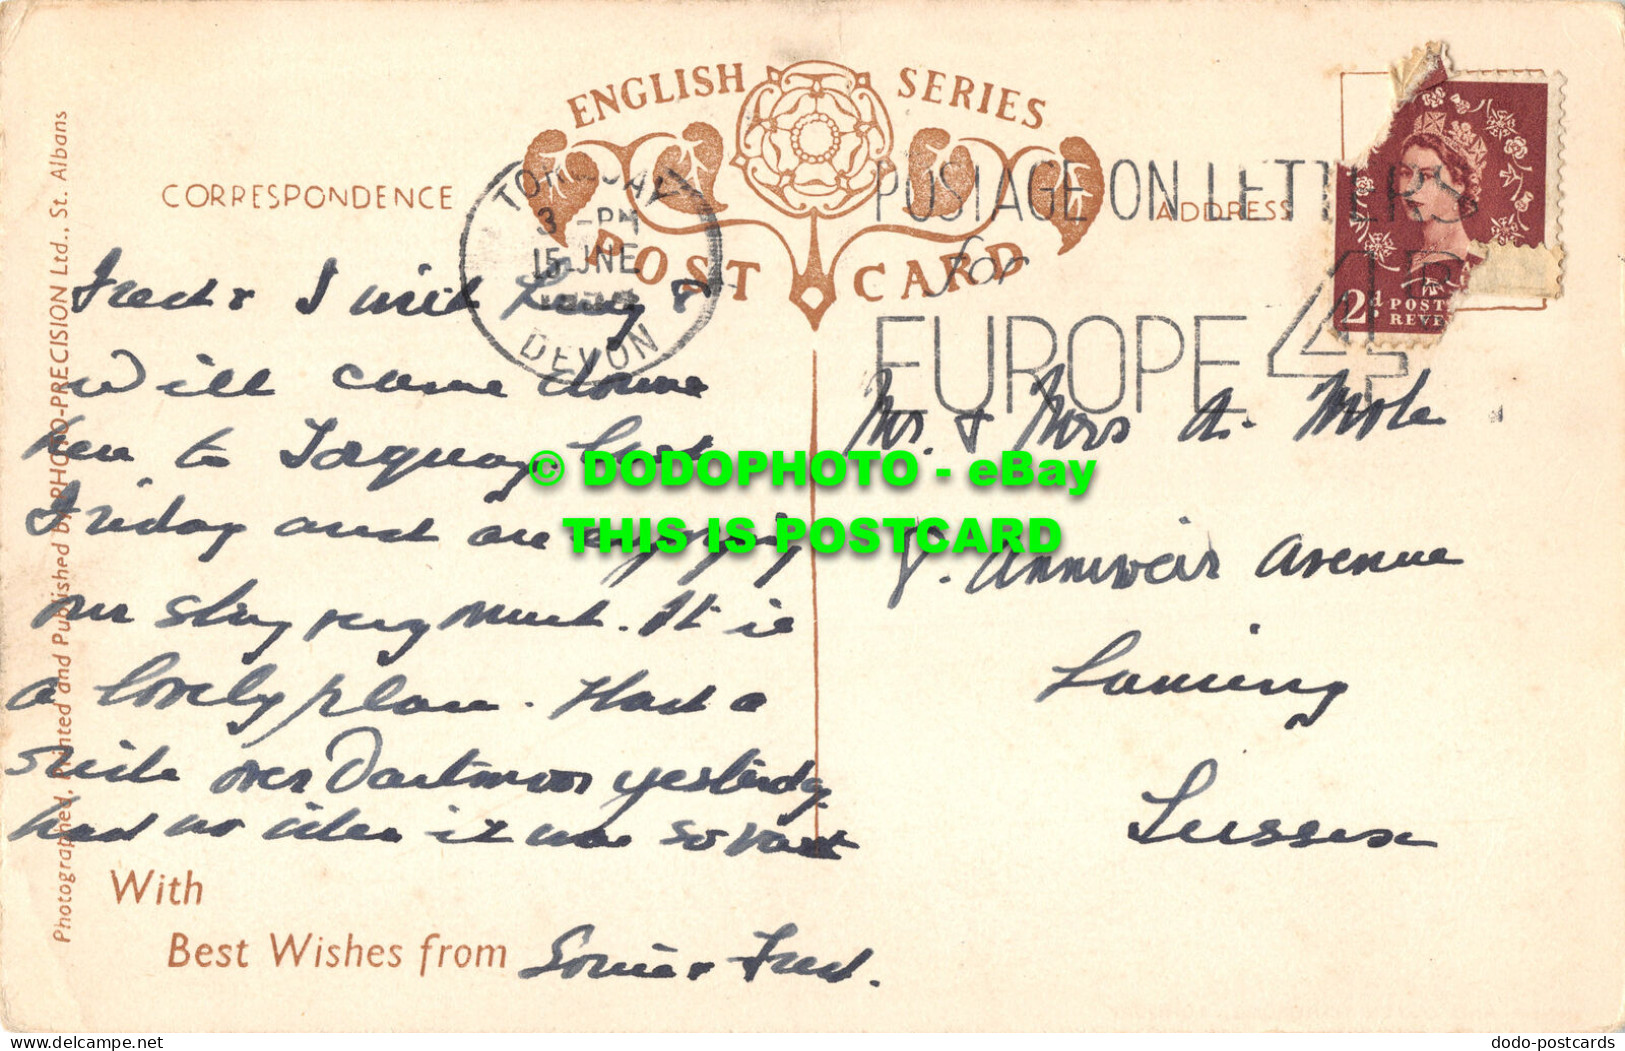 ENGLISH SERIES
POST CARD
CORRESPONDENCE
ADDRESS
TORQUAY
3 - PM
15 JNE
DEVON
POSTAGE ON LETTERS
for
EUROPE 4D
2D POST
REVE
Fred & I with &
Will came down
here to Torquay last
Friday and are enjoying
our stay very much. It is
a lovely place. Had a
ride over Dartmoor yesterday
had no idea it was so vast
With
Best Wishes from & Fred.
Mr. & Mrs A. Mole
Avenue
Lancing
Sussex
Photographed, Printed and Published by PHOTO-PRECISION Ltd., St. Albans
© DODOPHOTO - eBay
THIS IS POSTCARD
dodo-postcards